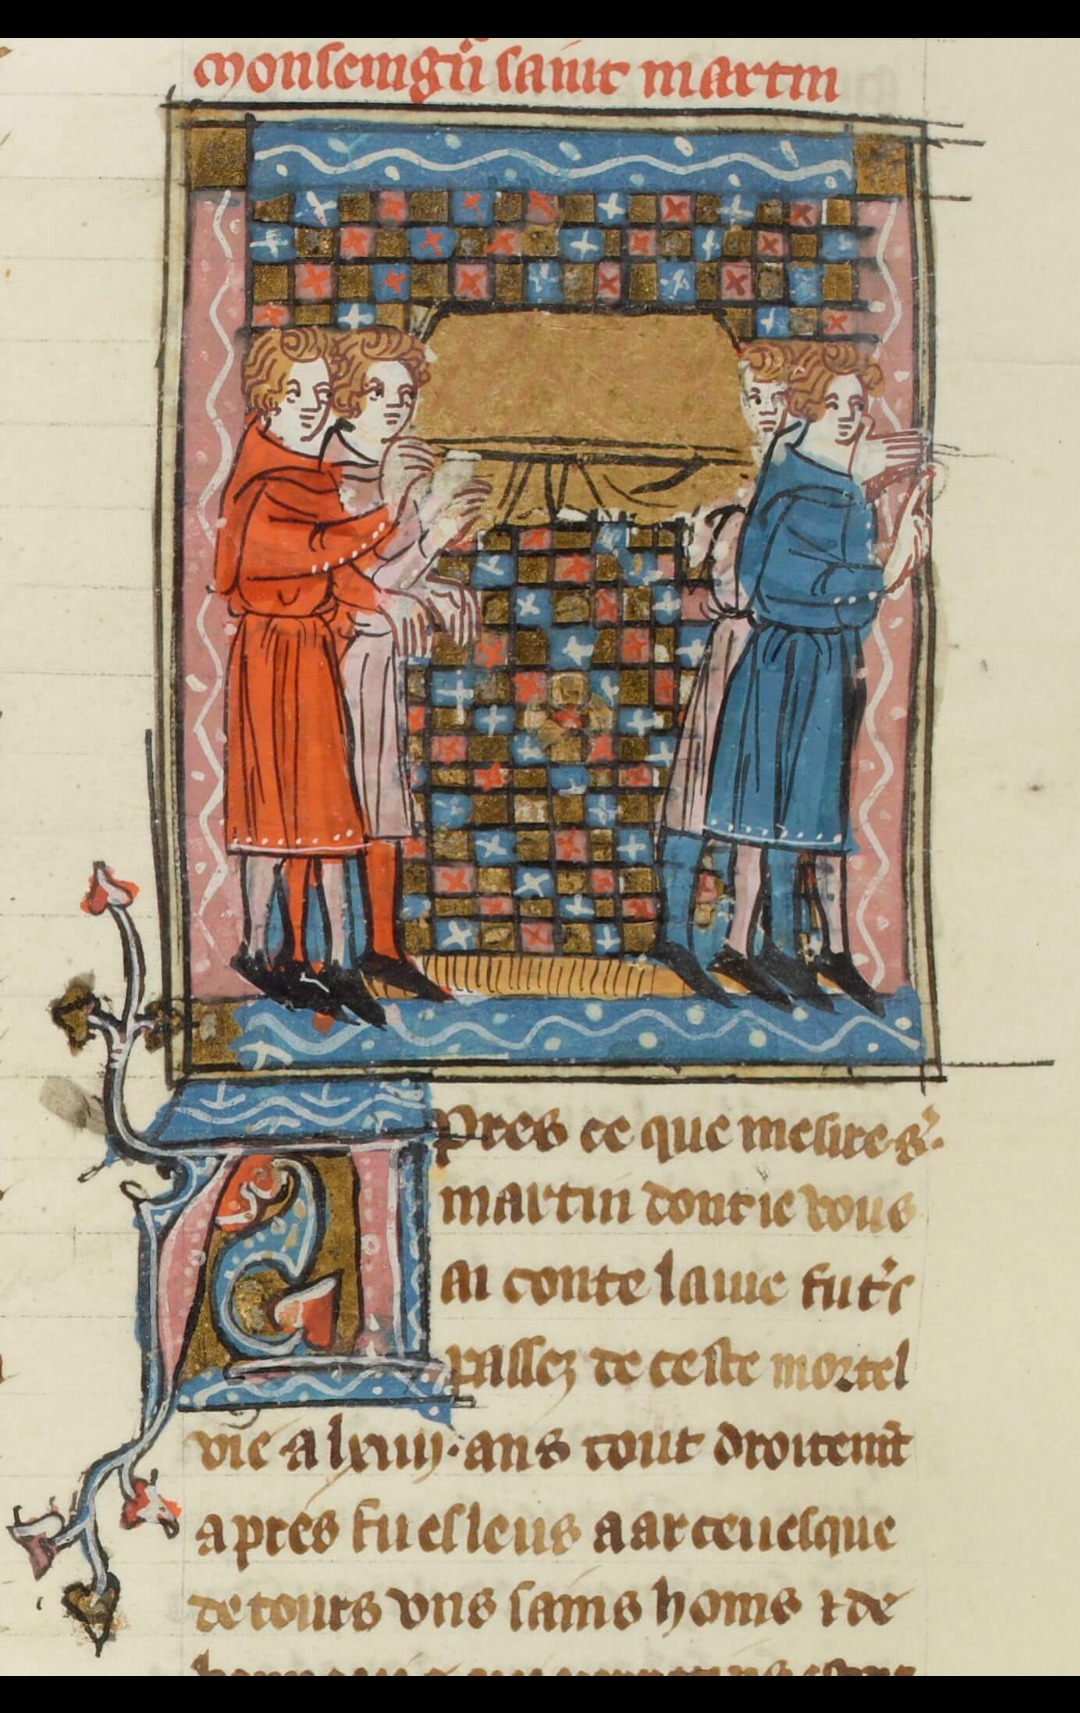 monseingn̄ saint martin
Apres ce que mesire s̄.
martin dont ie vous
ai conte la vie fut
passez de ceste mortel
vie a lxiiij. ans tout droitem̄t
apres fu esleus a arceuesque
de tours vns sains homs ⁊ de